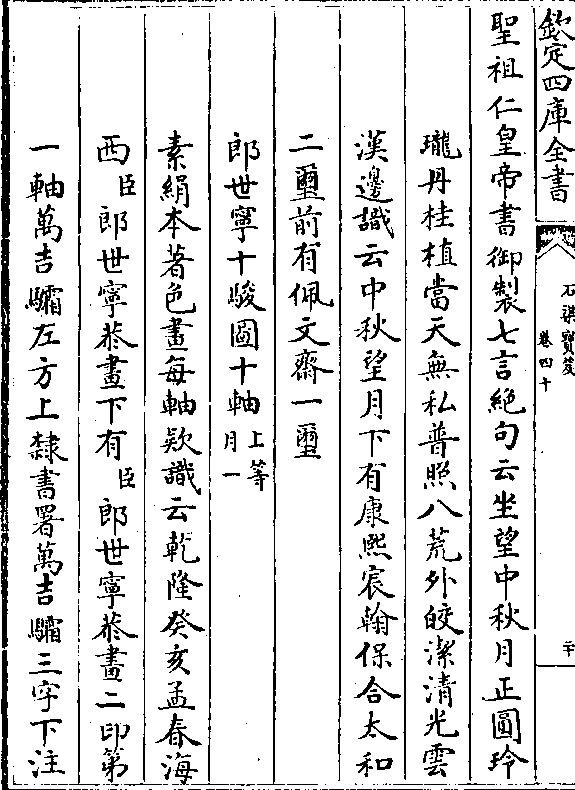 欽定四庫全書
石渠寳笈
卷四十
二十
聖祖仁皇帝書御製七言絶句云坐望中秋月正圓玲
瓏丹桂植當天無私普照八荒外皎潔清光雲
漢邊識云中秋望月下有康熙宸翰保合太和
二璽前有佩文齋一璽
郎世寧十駿圖十軸上等月一
素絹本著色畫每軸欵識云乾隆癸亥孟春海
西臣郎世寧恭畫下有臣郎世寧恭畫二印第
一軸萬吉驦左方上隸書署萬吉驦三字下注